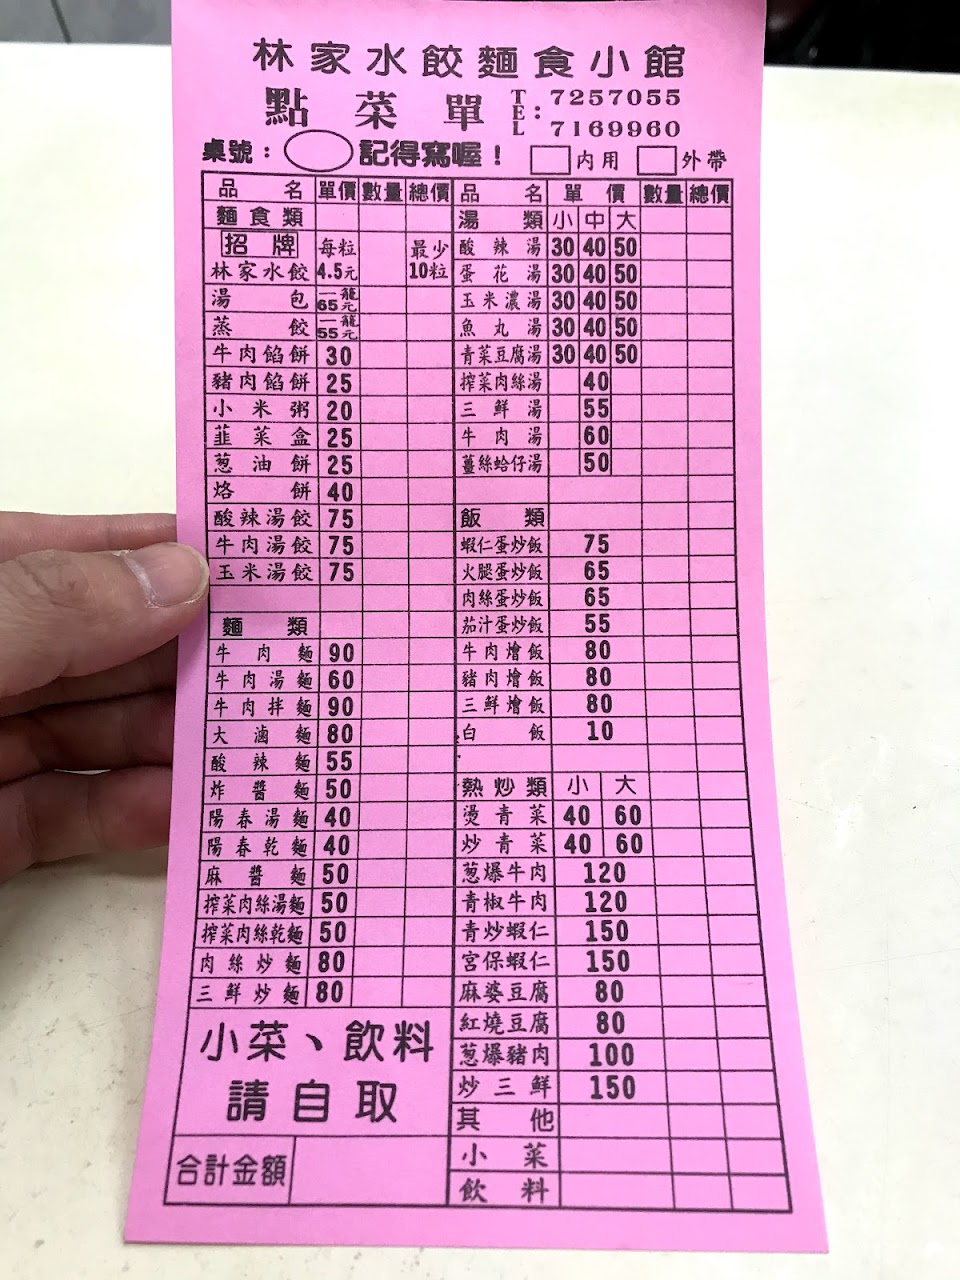 林家水餃麵食小館
點菜單 TEL: 7257055
7169960
桌號: 記得寫喔! 內用 外帶
品名 單價 數量 總價
麵食類
招牌 每粒 最少
林家水餃 4.5元 10粒
湯包 一籠65元
蒸餃 一籠55元
牛肉餡餅 30
豬肉餡餅 25
小米粥 20
韮菜盒 25
葱油餅 25
烙餅 40
酸辣湯餃 75
牛肉湯餃 75
玉米湯餃 75
麵類
牛肉麵 90
牛肉湯麵 60
牛肉拌麵 90
大滷麵 80
酸辣麵 55
炸醬麵 50
陽春湯麵 40
陽春乾麵 40
麻醬麵 50
搾菜肉絲湯麵 50
搾菜肉絲乾麵 50
肉絲炒麵 80
三鮮炒麵 80
小菜、飲料
請自取
合計金額
品名 單價 數量 總價
湯類 小 中 大
酸辣湯 30 40 50
蛋花湯 30 40 50
玉米濃湯 30 40 50
魚丸湯 30 40 50
青菜豆腐湯 30 40 50
搾菜肉絲湯 40
三鮮湯 55
牛肉湯 60
薑絲蛤仔湯 50
飯類
蝦仁蛋炒飯 75
火腿蛋炒飯 65
肉絲蛋炒飯 65
茄汁蛋炒飯 55
牛肉燴飯 80
豬肉燴飯 80
三鮮燴飯 80
白飯 10
熱炒類 小 大
燙青菜 40 60
炒青菜 40 60
葱爆牛肉 120
青椒牛肉 120
青炒蝦仁 150
宮保蝦仁 150
麻婆豆腐 80
紅燒豆腐 80
葱爆豬肉 100
炒三鮮 150
其他
小菜
飲料